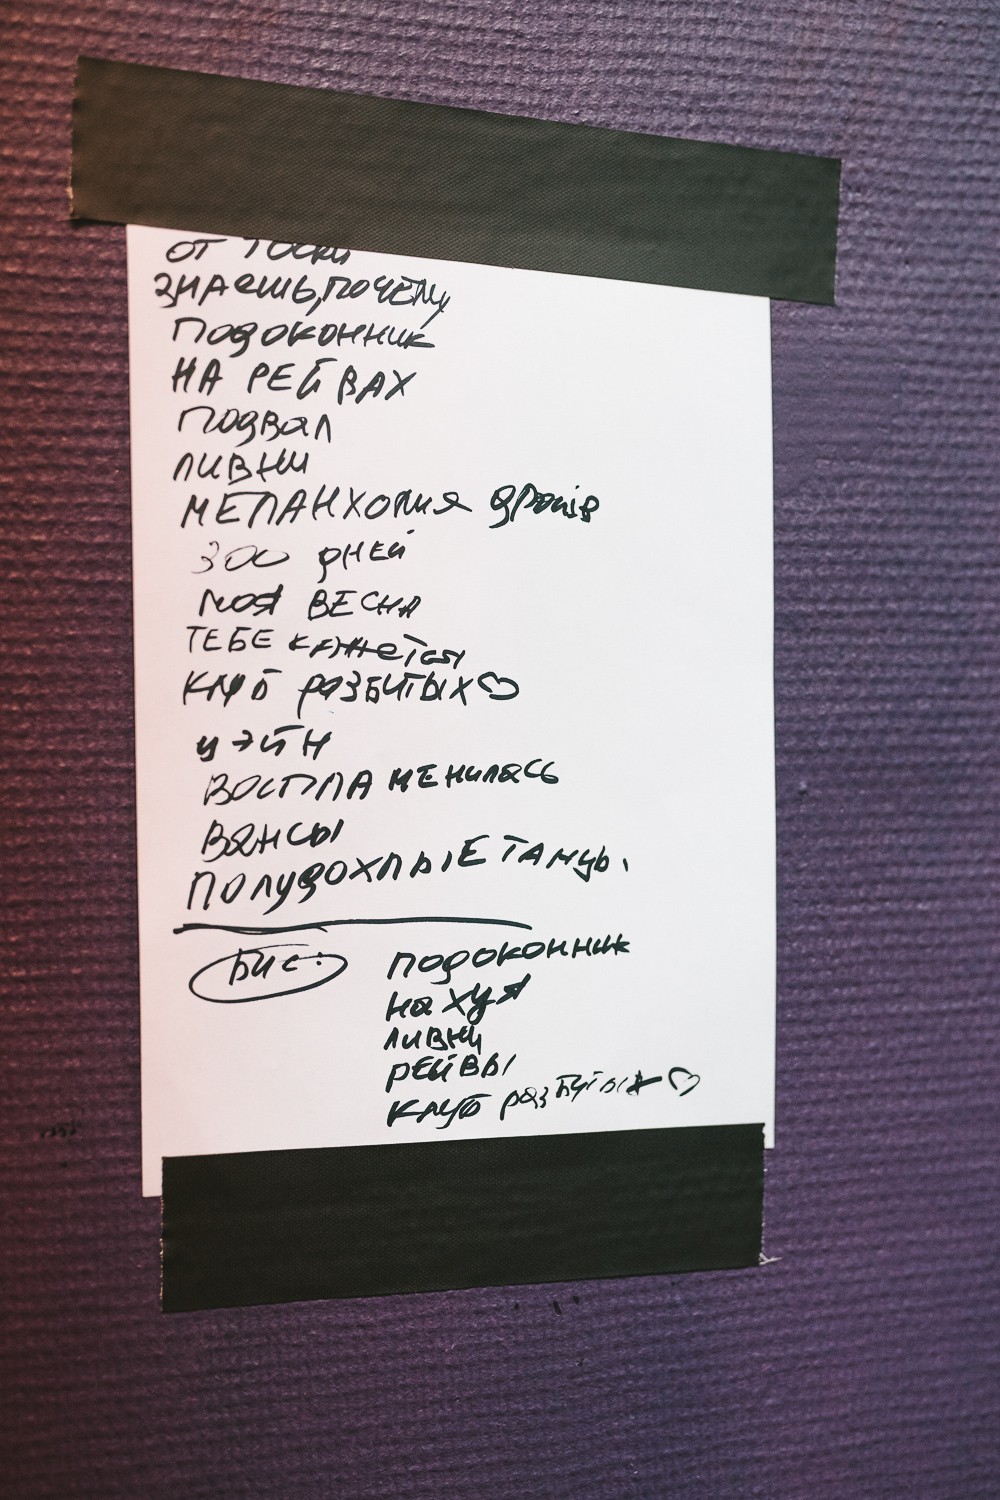 ОТ ТОСКИ
ЗНАЕШЬ, ПОЧЕМУ
ПОДОКОННИК
НА РЕЙВАХ
ПОДВАЛ
ЛИВНИ
МЕЛАНХОЛИЯ
300 ДНЕЙ
МОЯ ВЕСНА
ТЕБЕ КАЖЕТСЯ
КЛУБ РАЗБИТЫХ ♡
УЭЙН
МЕНИЛАСЬ
ВАНСЫ
ПОЛУДОХЛЫЕ ТАНЦЫ.
БИС:
ПОДОКОННИК
НА ХУЯ
ЛИВНИ
РЕЙВЫ
КЛУБ РАЗБИТЫХ ♡